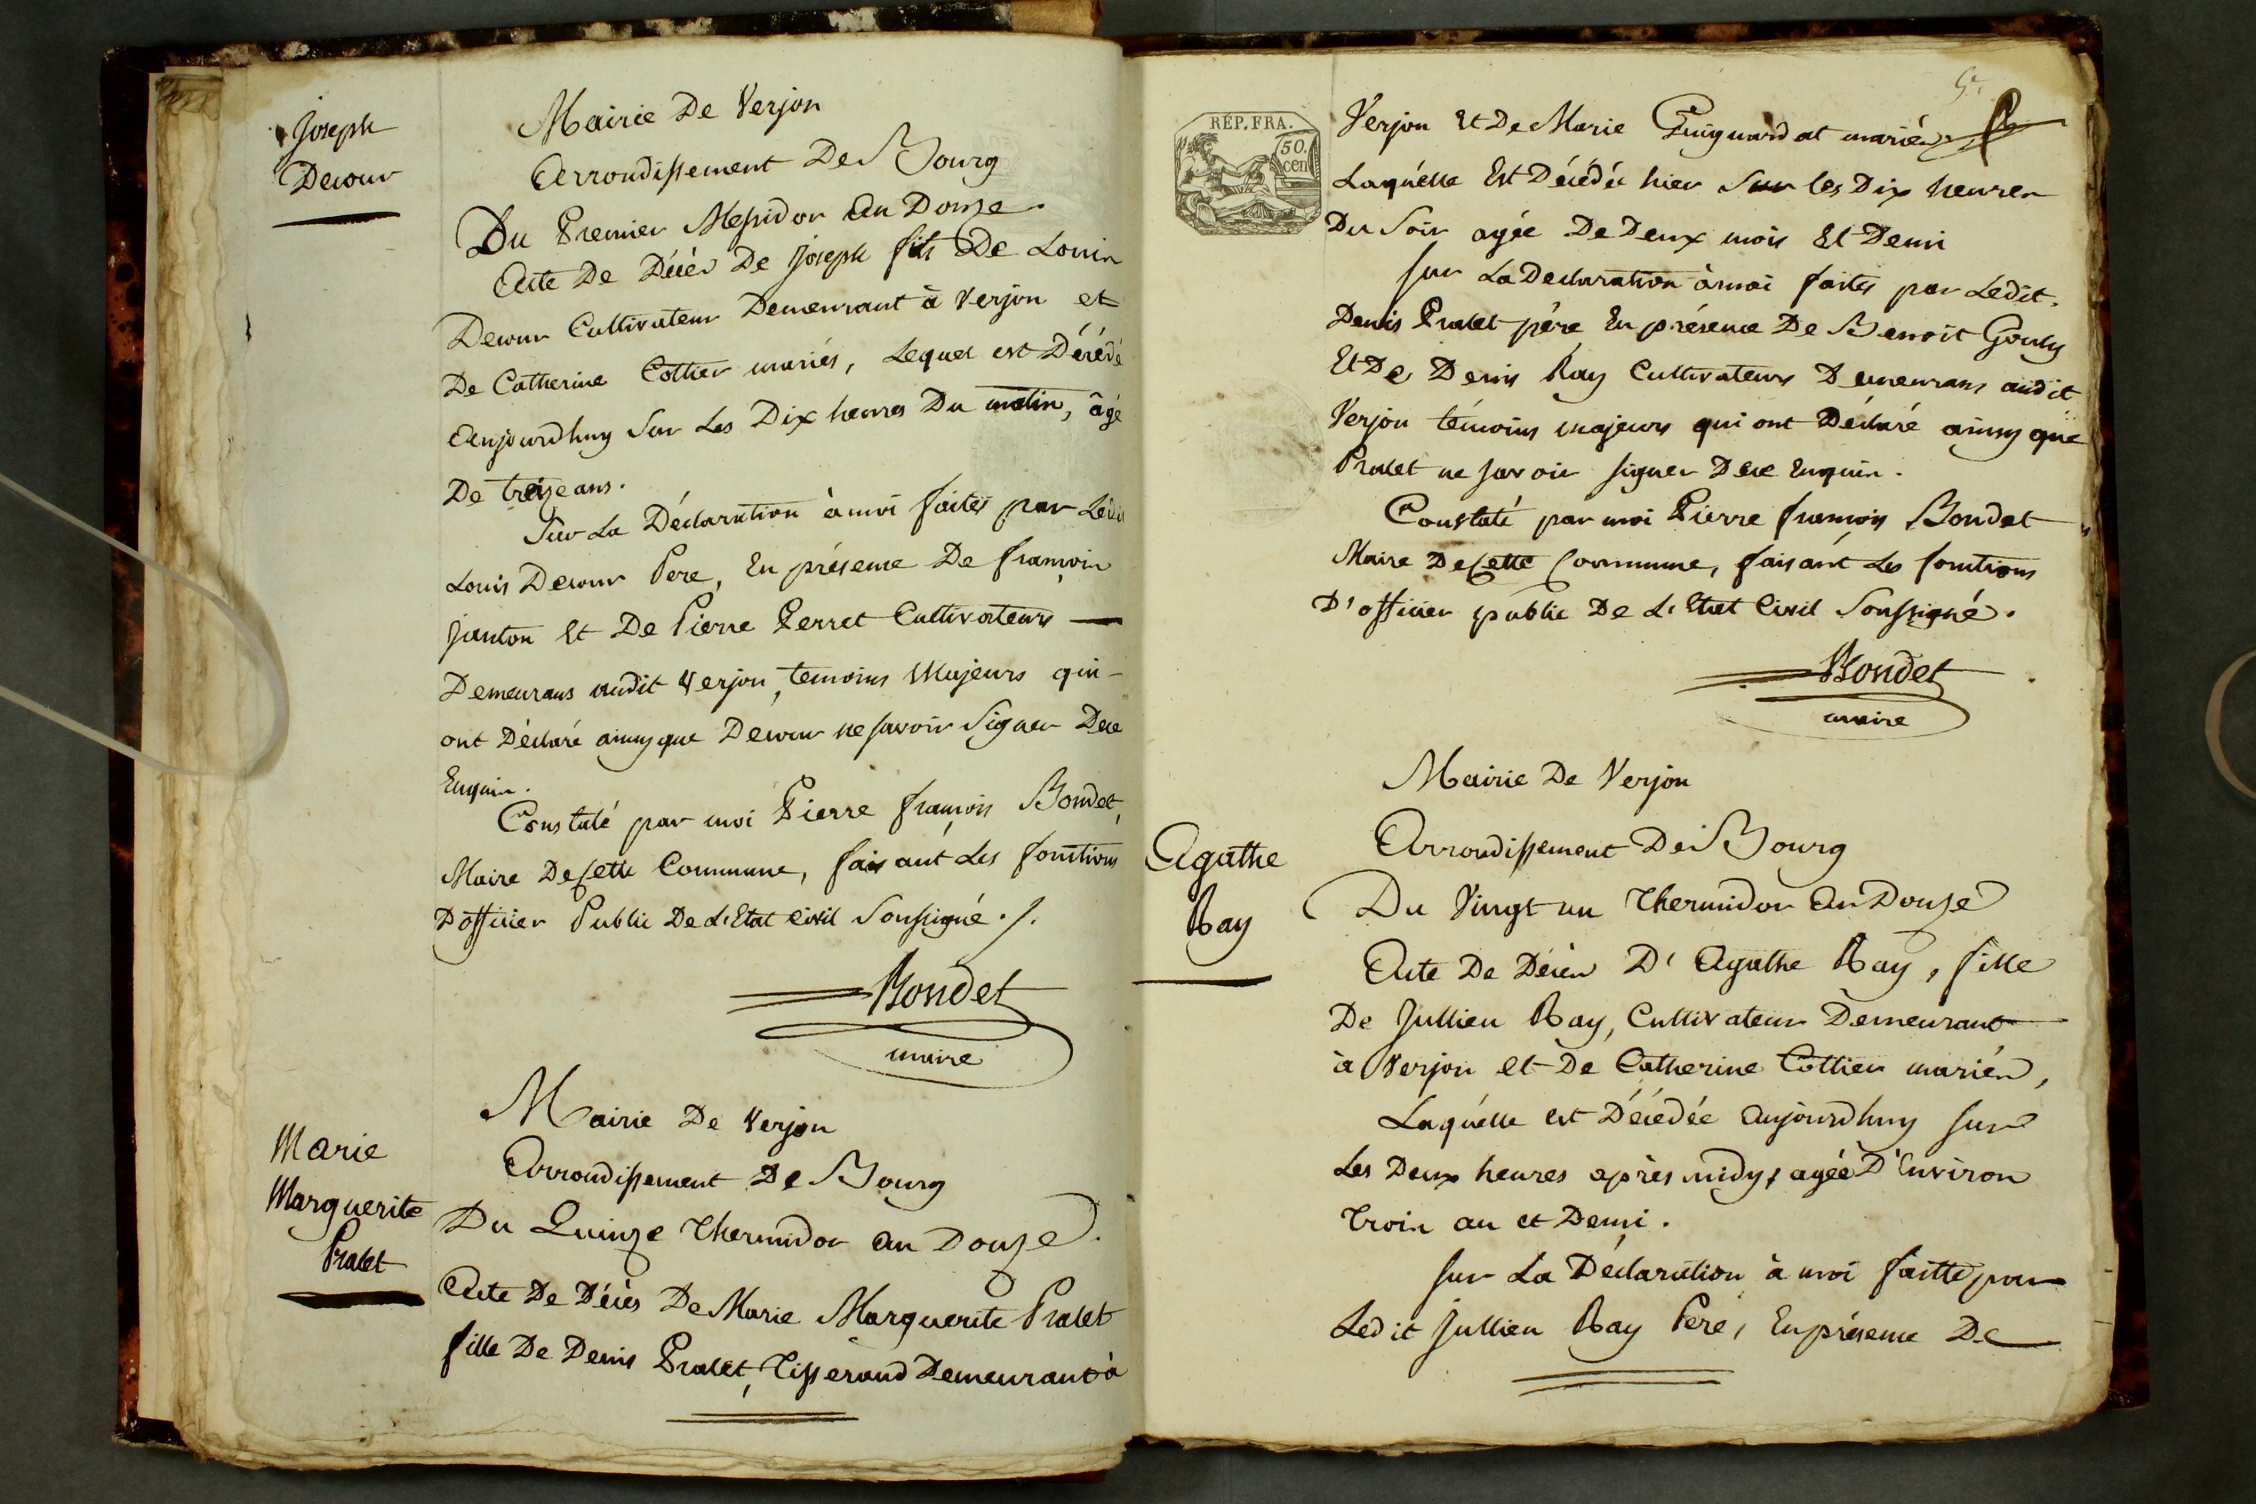 Joseph
Decour
Mairie De Verjon
Arrondissement De Bourg
Du Premier Messidor an Douze.
Acte De Décès De Joseph fils De Louis
Decour Cultivateur Demeurant à Verjon et
De Catherine Cottier mariés, Lequel est Décédé
Aujourdhuy Sur Les Dix heures Du matin, âgé
De treize ans.
Sur La Déclaration à moi faites par Ledit
Louis Decour Pere, En présence De françois
Janton Et De Pierre Perret Cultivateurs
Demeurans audit Verjon, temoins Majeurs qui
ont Déclaré ainsy que Decour ne savoir Signer Dece
Enquis.
Constaté par moi Pierre françois Bondet,
Maire De cette Commune, faisant Les fonctions
D'officier Public De L'Etat Civil Soussigné ./.
Bondet
maire
Marie
Marguerite
Pralet
Mairie De Verjon
Arrondissement De Bourg
Du Quinze Thermidor an Douze.
Acte De Décès De Marie Marguerite Pralet
fille De Denis Pralet, Tisserand Demeurant à
REP. FRA.
50.
cen
5.
Verjon Et De Marie Guiguardat mariés
Laquelle Est Décédée hier Sur les Dix heures
Du Soir agée De Deux mois Et Demi
sur La Declaration à moi faites par Ledit.
Denis Pralet père En présence De Benoit Gouly
Et De Denis Ray Cultivateurs Demeurans audit
Verjon témoins majeurs qui ont Déclaré ainsy que
Pralet ne savoir signer Dece Enquis.
Constaté par moi Pierre françois Bondet
Maire De Cette Commune, faisant Les fonctions
D'officier public De L'Etat Civil Soussigné.
Bondet
maire
Agathe
Ray
Mairie De Verjon
Arrondissement De Bourg
Du Vingt un Thermidor an Douze
Acte De Décès D'Agathe Ray, fille
De Jullien Ray, Cultivateur Demeurant
à Verjon et De Catherine Cottier mariés,
Laquélle est Décédée aujourdhuy sur
Les Deux heures après midy, agée D'Environ
Trois an et Demi.
sur La Déclaration à moi faitte par
Ledit Jullien Ray Pere, En présence De